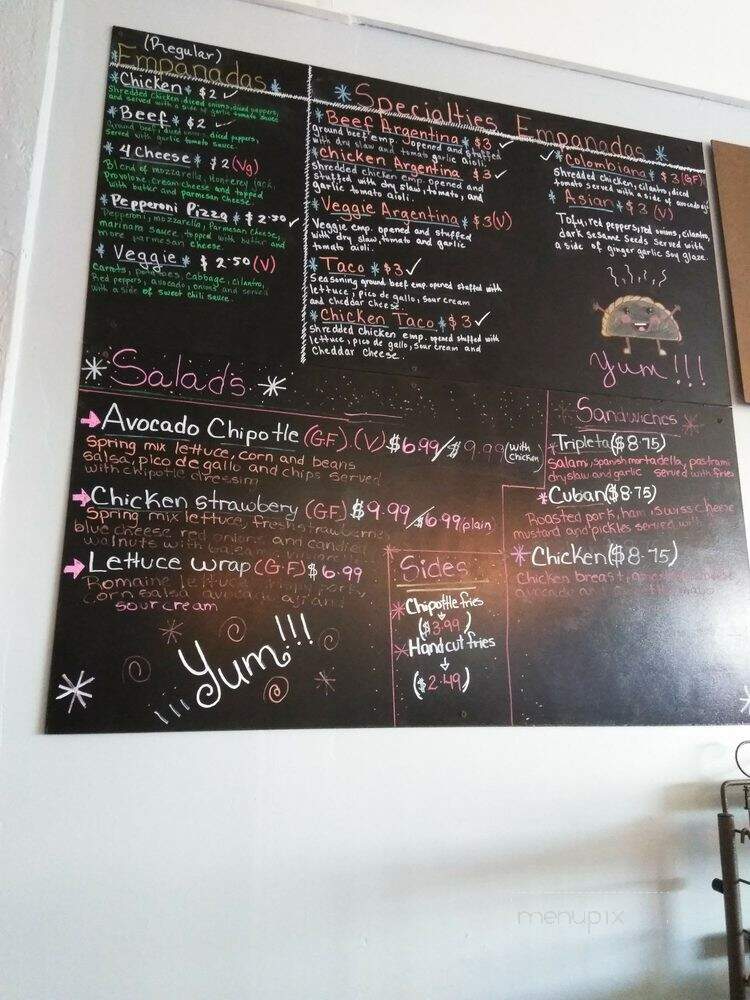 (Regular)
Empanadas
Chicken $2
Shredded chicken, diced onions, diced peppers,
and served with a side of garlic tomato sauce
Beef $2
ground beef, diced onions, diced peppers,
served with garlic tomato sauce
4 Cheese $2 (Vg)
Blend of mozzarella, Monterey Jack,
Provolone, cream cheese and topped
with butter and parmesan cheese.
Pepperoni Pizza $2.50
Pepperoni, mozzarella, Parmesan cheese,
marinara sauce topped with butter and
more parmesan cheese.
Veggie $2.50 (V)
Carrots, potatoes, cabbage, cilantro,
Red peppers, avocado, onions and served
with a side of sweet chili sauce.
Specialties Empanadas
Beef Argentina $3
ground beef emp. opened and stuffed
with dry slaw and tomato garlic aioli.
chicken Argentina $3
shredded chicken emp. opened and
stuffed with dry slaw, tomato, and
garlic tomato aioli.
Veggie Argentina $3 (V)
Veggie emp. opened and stuffed
with dry slaw, tomato and garlic
tomato aioli.
Taco $3
Seasoning ground beef emp. opened stuffed with
lettuce, pico de gallo, sour cream
and cheddar cheese.
Chicken Taco $3
shredded chicken emp. opened stuffed with
lettuce, pico de gallo, sour cream and
Cheddar Cheese.
Colombiana $3 (GF)
Shredded chicken, cilantro, diced
tomato served with a side of avocado aji
Asian $3 (V)
Tofu, red peppers, red onions, cilantro,
dark sesame seeds served with
a side of ginger garlic soy glaze.
Yum!!!
Salads
Avocado Chipotle (GF) (V) $6.99/$9.99 (with Chicken)
Spring mix lettuce, corn and beans
salsa, pico de gallo and chips served
with chipotle dressing
Chicken strawbery (GF) $9.99/$6.99 (plain)
Spring mix lettuce, fresh strawberries
blue cheese red onions and candied
walnuts with
Lettuce wrap (G.F) $6.99
Romaine lettuce
corn salsa avocado aji and
sour cream
Yum!!!
Sides
Chipotle fries
($3.99)
Hand cut fries
($2.49)
Sandwiches
Tripleta ($8.75)
Salami, spanish mortadella, pastrami
dry slaw and garlic served with fries
Cuban ($8.75)
Roasted pork, ham, swiss cheese
mustard and pickles served with
Chicken ($8.75)
Chicken breast,
menupix